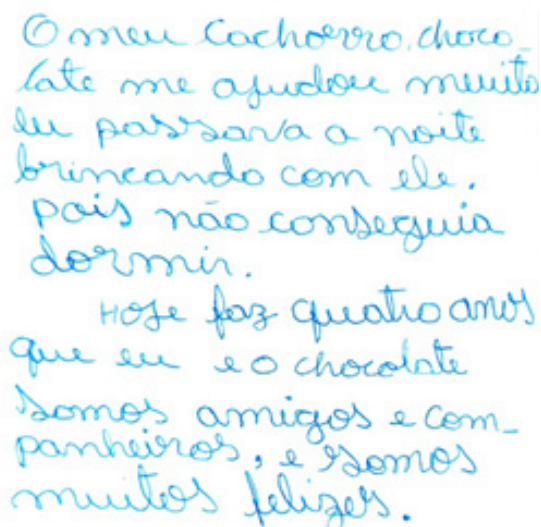 O meu cachorro, choco-
late me ajudou muito
eu passava a noite
brincando com ele.
pois não conseguia
dormir.
Hoje faz quatro anos
que eu e o chocolate
somos amigos e com-
panheiros, e somos
muitos felizes.